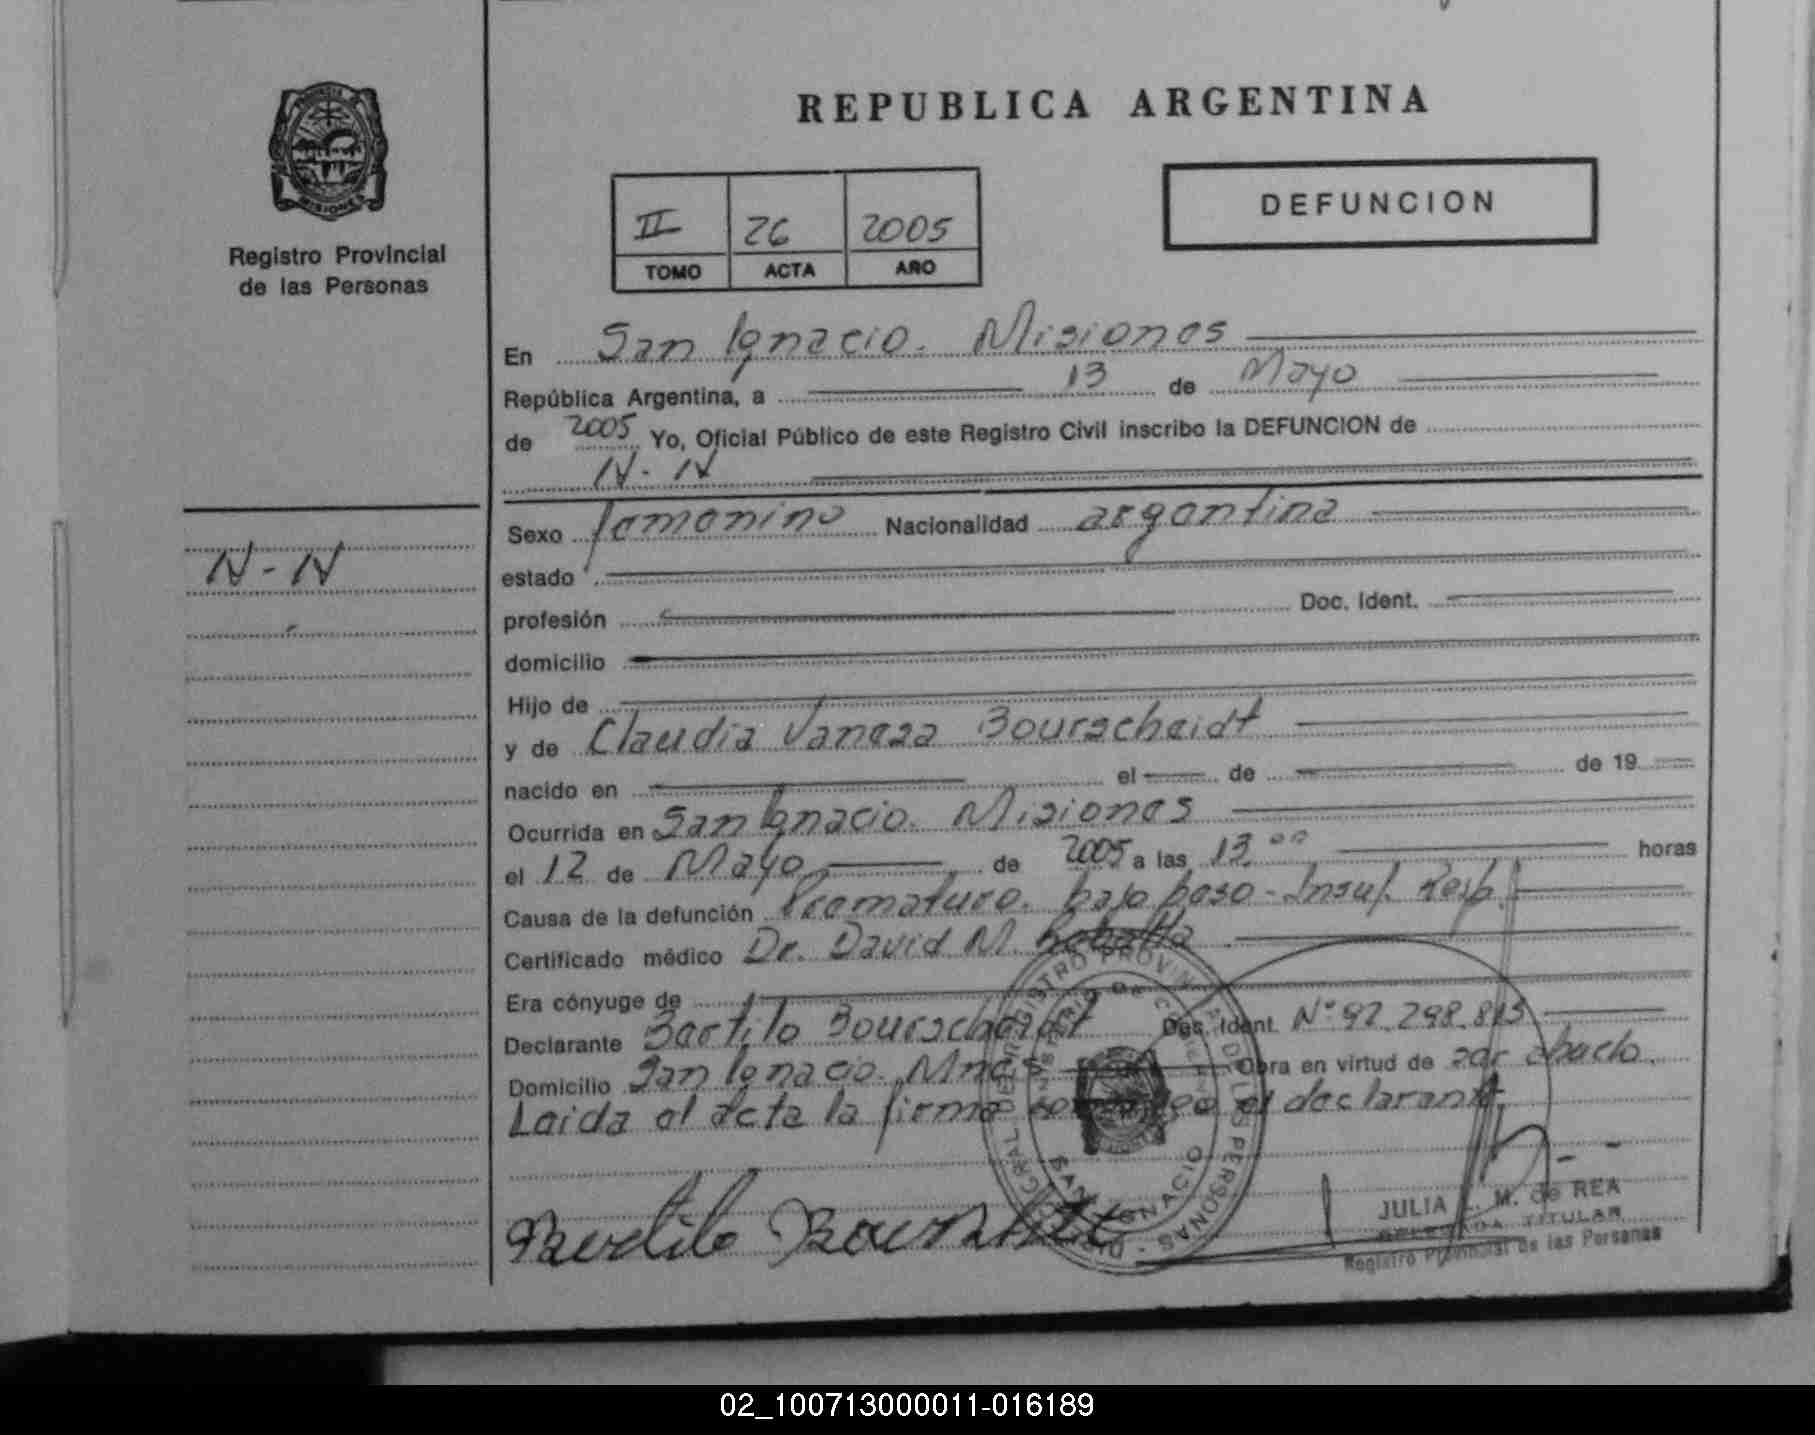 PROVINCIA DE
MISIONES
Registro Provincial
de las Personas
N-N
REPUBLICA ARGENTINA
II 26 2005
TOMO ACTA AÑO
DEFUNCION
En San Ignacio. Misiones
República Argentina, a 13 de Mayo
de 2005 Yo, Oficial Público de este Registro Civil inscribo la DEFUNCION de
N-N
Sexo femenino Nacionalidad argentina
estado
profesión Doc. Ident.
domicilio
Hijo de
y de Claudia Vanesa Bourscheidt
nacido en el de de 19
Ocurrida en San Ignacio. Misiones
el 12 de Mayo de 2005 a las 13 00 horas
Causa de la defunción Prematuro. bajo peso - Insuf. Resp.
Certificado médico Dr. David M.
Era cónyuge de
Declarante Bertilo Bourscheidt Doc. Ident. N° 92.298.815
Domicilio San Ignacio. Mnes Obra en virtud de ser abuelo.
Leida el acta la firma conmigo el declarante
Bertilo
JULIA M. de REA
DELEGADA TITULAR
Registro Provincial de las Personas
02_100713000011-016189